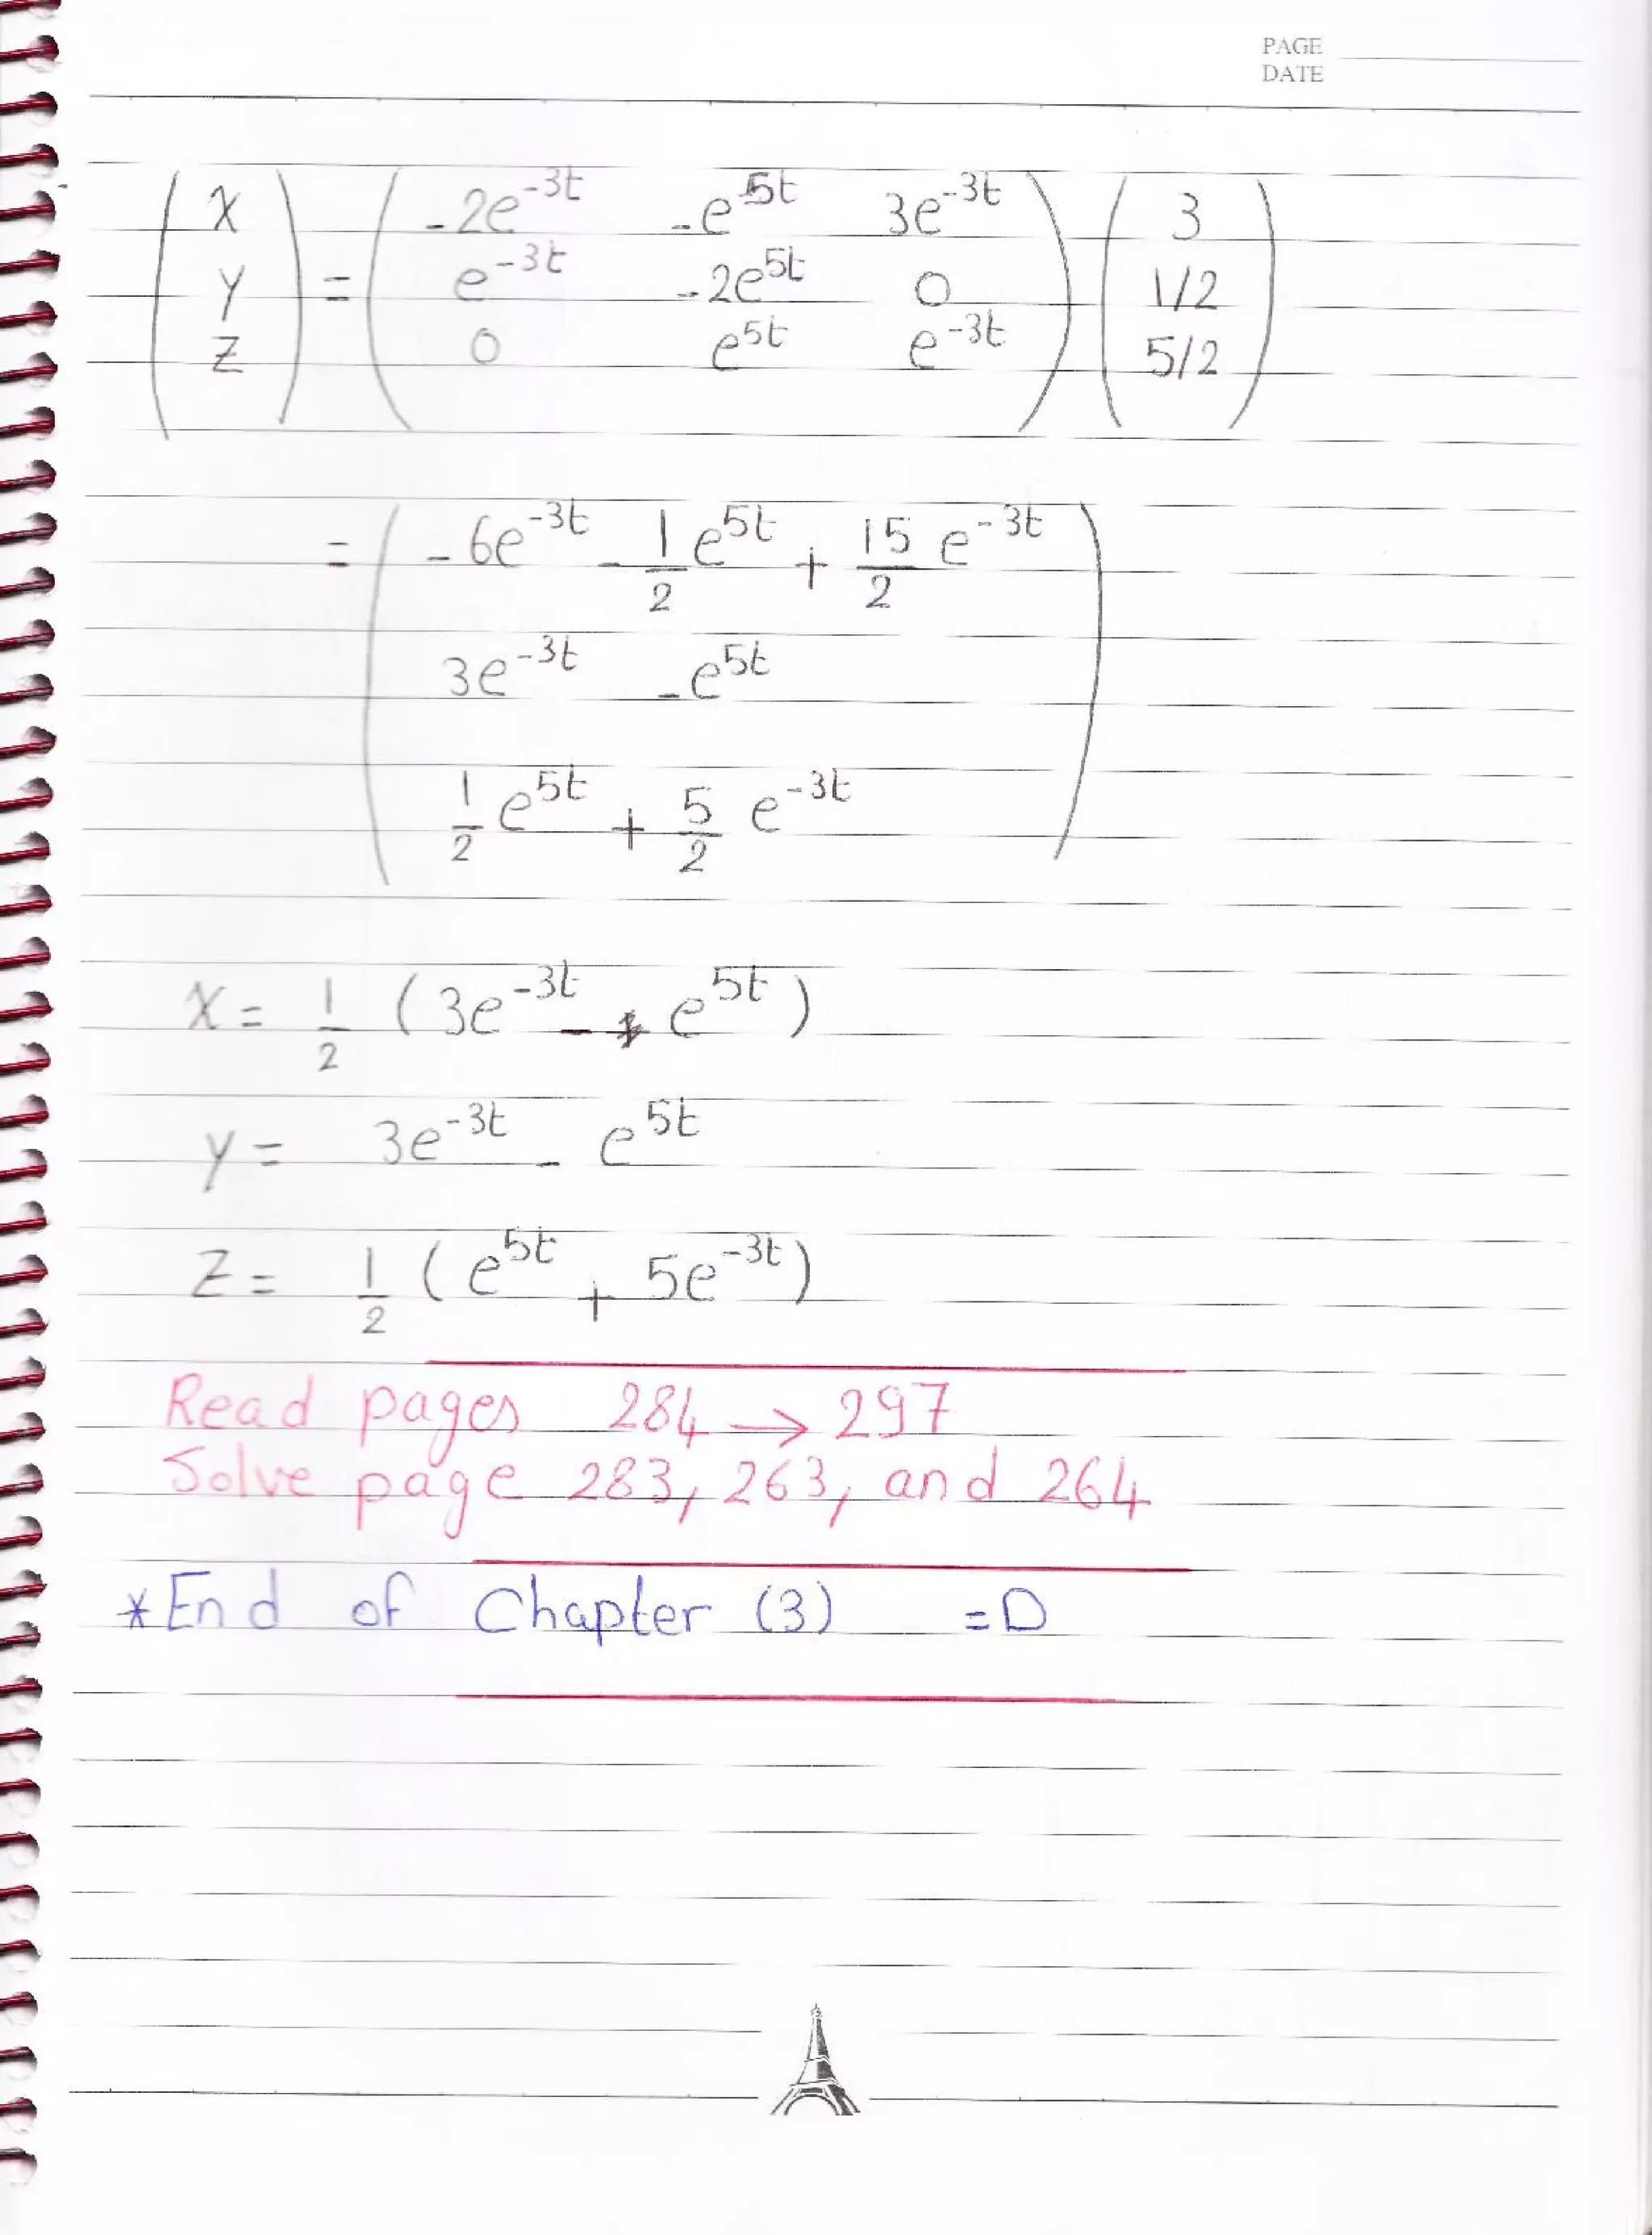 PAGE
DATE
( X ) = ( -2e^-3t   -e^5t   3e^-3t ) ( 3 )
( y ) = ( e^-3t   -2e^5t   0 ) ( 1/2 )
( Z ) = ( 0   e^5t   e^-3t ) ( 5/2 )
= ( -6e^-3t - 1/2 e^5t + 15/2 e^-3t
3e^-3t - e^5t
1/2 e^5t + 5/2 e^-3t )
X = 1/2 ( 3e^-3t - e^5t )
y = 3e^-3t - e^5t
Z = 1/2 ( e^5t + 5e^-3t )
Read pages 284 → 297
Solve page 283, 263, and 264
* End of Chapter (3) =D